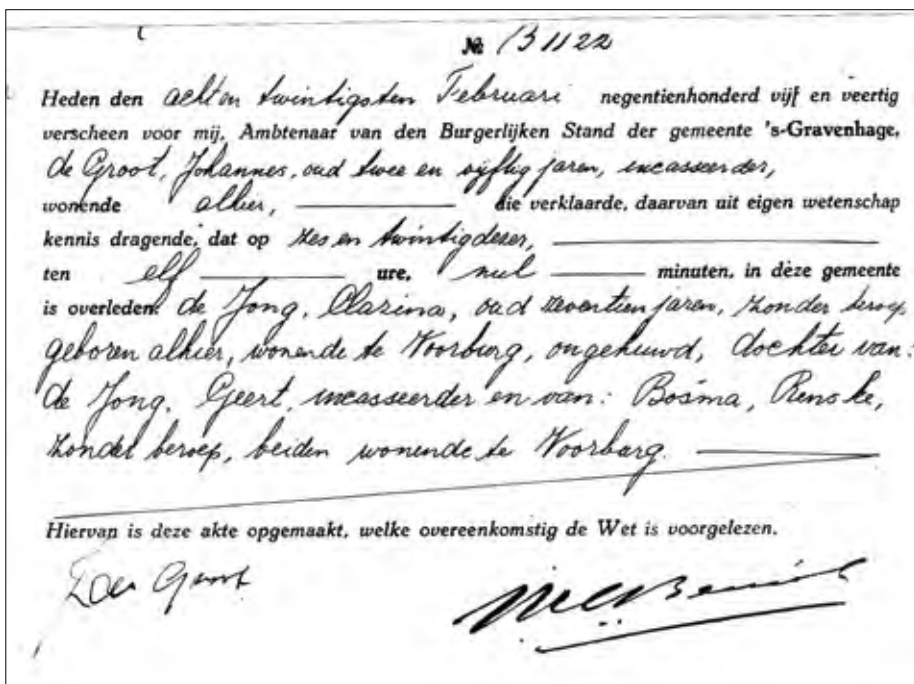 № B 1122
Heden den achten twintigsten Februari negentienhonderd vijf en veertig
verscheen voor mij, Ambtenaar van den Burgerlijken Stand der gemeente 's-Gravenhage,
de Groot, Johannes, oud twee en vijftig jaren, incasseerder,
wonende alhier, die verklaarde, daarvan uit eigen wetenschap
kennis dragende, dat op zes en twintig dezer,
ten elf ure, nul minuten, in deze gemeente
is overleden: de Jong, Clasina, oud zeventien jaren, zonder beroep
geboren alhier, wonende te Voorburg, ongehuwd, dochter van:
de Jong, Geert, incasseerder en van: Bosma, Renske,
zonder beroep, beiden wonende te Voorburg.
Hiervan is deze akte opgemaakt, welke overeenkomstig de Wet is voorgelezen.
de Groot